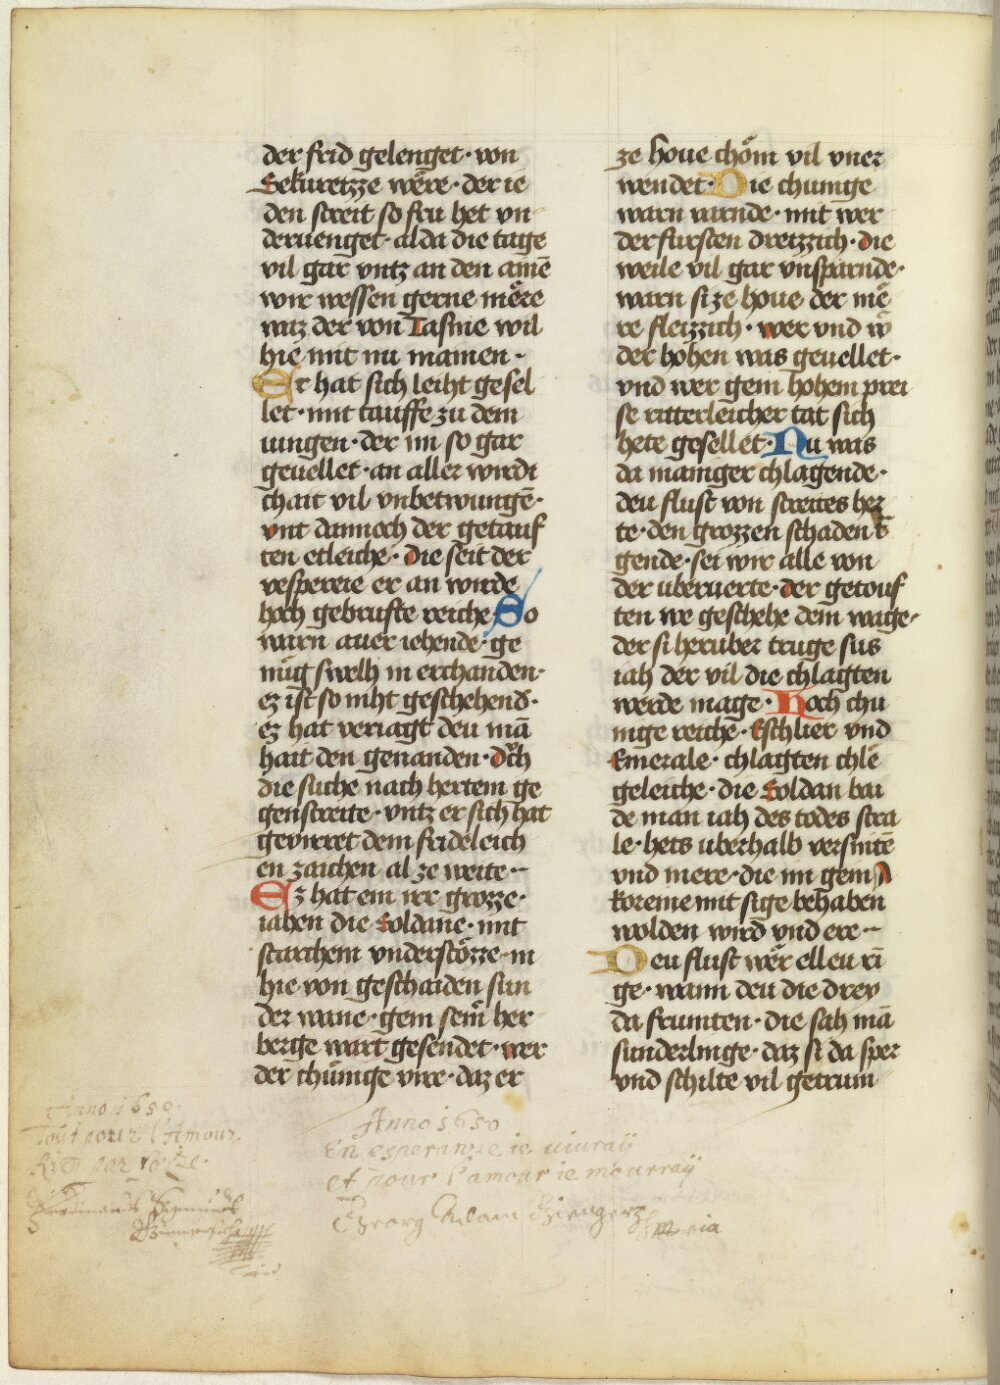 der frid gelenget · von
Sekuretzze were · der ie
den streit so fru het vn
deruenget · alda die tage
vil gar vntz an den amē
wir wessen gerne mere
waz der von Tasme wil
hie mit nu mainen ·
Er hat sich leiht gesel
let · mit tauffe zu dem
iungen · der im so gar
geuellet · an aller wirdi
chait vil vnbetwungē ·
vnt dannoch der getauf
ten etleiche · die seit der
vespereie er an wirde
hoch gebrufte reiche · So
warn auer iehende · ge
nug swelh in erchanden ·
ez ist so niht geschehend ·
ez hat veriagt deu mā
hait den genanden · doch
die suche nach hertem ge
genstreite · vntz er sich hat
geuirret dem frideleich
en zaichen al ze weite ·
Ez hat ein irr grozze ·
iahen die Soldane · mit
starchem vnderstözze · in
hie von geschaiden sun
der wane · gem seim her
berge wart gesendet · wer
der chünige vire · daz er
ze houe chöm vil vner
wendet · Die chunige
warn varnde · mit wer
der fursten dreizzich · die
weile vil gar vnsparnde ·
warn si ze houe der me
re fleizzich · wer vnd w
der hohen was geuellet ·
vnd wer gem hohem prei
se ritterleicher tat sich
hete gesellet · Nu was
da maniger chlagende ·
deu flust von streites her
te · den grozzen schaden t
gende · sei wir alle von
der uberuerte · der getouf
ten we geschehe dem wage ·
der si heruber truge sus
iah der vil die chlagten
werde mage · Hoch chu
nige reiche · Eschlier vnd
Emerale · chlagten chle
geleiche · die Soldan bai
de man iah des todes stra
le · hets uberhalb versnitē
vnd mere · die im gein A
koreine mit sige behaben
wolden wird vnd ere ·
Deu flust wer elleu ri
ge · wann deu die drey
da frumten · die sah mā
sunderlinge · daz si da sper
vnd schilte vil getrum
Anno 1650.
Tout pour l'Amour
Rien par force.
Ferdinandus Sigmundus
Anno 1650
En esperance ie viuray
et pour l'amour ie mourray
Georg Adam